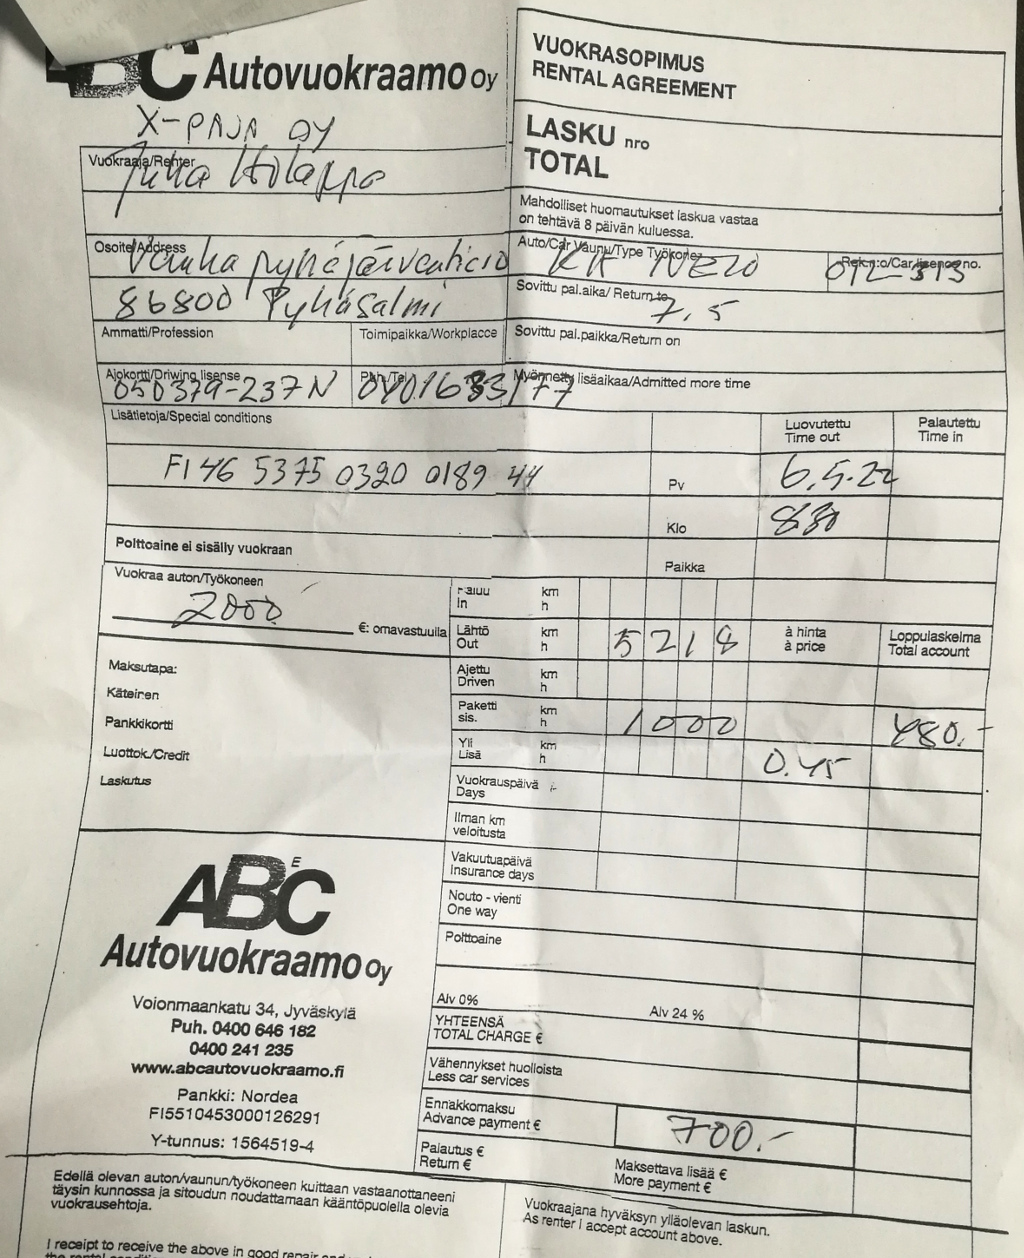 ABC Autovuokraamo Oy
X-PAJA OY
Vuokraaja/Renter
Juha Holappa
Osoite/Address
86800 Pyhäsalmi
Ammatti/Profession
Toimipaikka/Workplacce
Ajokortti/Driwing lisense
050379-237N
Puh./Tel.
Lisätietoja/Special conditions
FI 46 5375 0320 0189 44
Polttoaine ei sisälly vuokraan
VUOKRASOPIMUS
RENTAL AGREEMENT
LASKU nro
TOTAL
Mahdolliset huomautukset laskua vastaa
on tehtävä 8 päivän kuluessa.
Auto/Car Vaunu/Type Työkone
Rek.n:o/Car lisence no.
Sovittu pal.aika/ Return to
7.5
Sovittu pal.paikka/Return on
Myönnetty lisäaikaa/Admitted more time
Luovutettu
Time out
Palautettu
Time in
Pv
6.5.22
Klo
830
Paikka
Vuokraa auton/Työkoneen
2000
€: omavastuulla
Maksutapa:
Käteinen
Pankkikortti
Luottok./Credit
Laskutus
Paluu km
In h
Lähtö km 5218 à hinta Loppulaskelma
Out h à price Total account
Ajettu km
Driven h
Paketti km 1000 480.-
sis. h
Yli km
Lisä h 0.45
Vuokrauspäivä
Days
Ilman km
veloitusta
Vakuutuapäivä
Insurance days
Nouto - vienti
One way
Polttoaine
Alv 0% Alv 24 %
YHTEENSÄ
TOTAL CHARGE €
Vähennykset huolloista
Less car services
Ennakkomaksu
Advance payment € 700.-
Palautus €
Return €
Maksettava lisää €
More payment €
E
ABC
Autovuokraamo Oy
Voionmaankatu 34, Jyväskylä
Puh. 0400 646 182
0400 241 235
www.abcautovuokraamo.fi
Pankki: Nordea
FI5510453000126291
Y-tunnus: 1564519-4
Edellä olevan auton/vaunun/työkoneen kuittaan vastaanottaneeni
täysin kunnossa ja sitoudun noudattamaan kääntöpuolella olevia
vuokrausehtoja.
I receipt to receive the above in good repair and
Vuokraajana hyväksyn ylläolevan laskun.
As renter I accept account above.